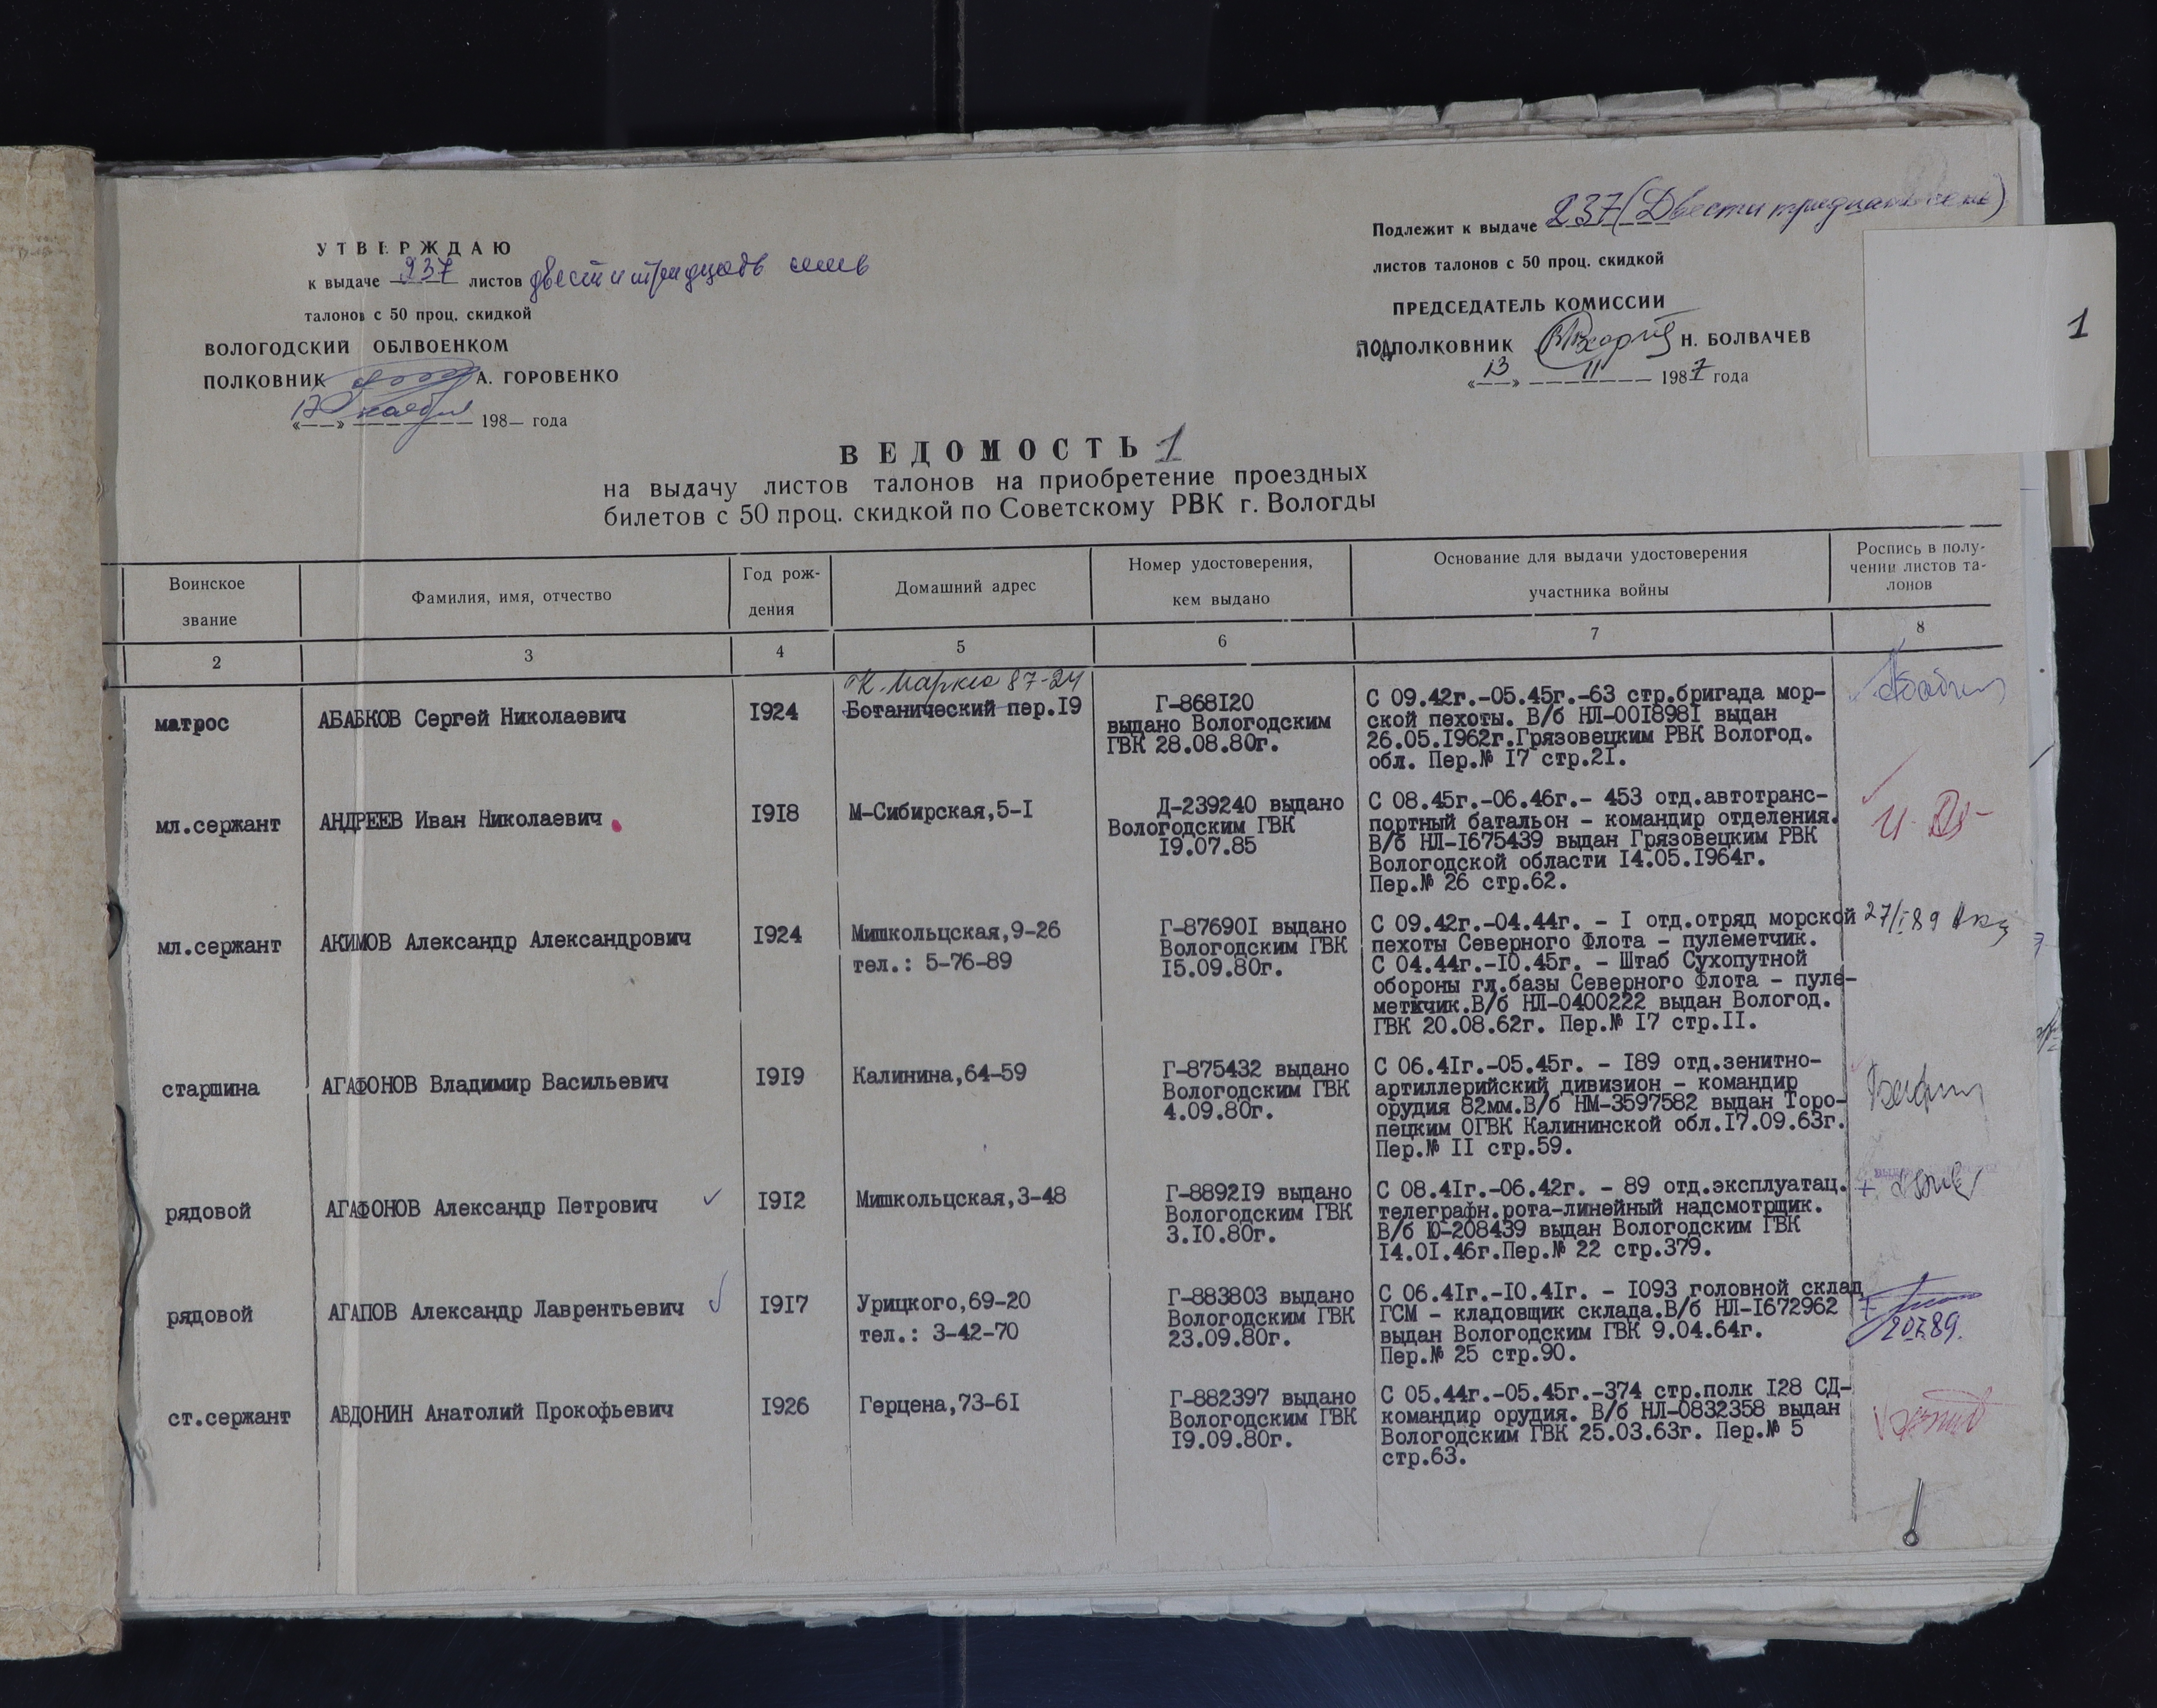 УТВЕРЖДАЮ
к выдаче 237 листов двести тридцать семь
талонов с 50 проц. скидкой
ВОЛОГОДСКИЙ ОБЛВОЕНКОМ
ПОЛКОВНИК А. ГОРОВЕНКО
«17» ноября 198— года
Подлежит к выдаче 237 (Двести тридцать семь)
листов талонов с 50 проц. скидкой
ПРЕДСЕДАТЕЛЬ КОМИССИИ
ПОДПОЛКОВНИК Н. БОЛВАЧЕВ
«13» 11 1987 года
1
ВЕДОМОСТЬ 1
на выдачу листов талонов на приобретение проездных
билетов с 50 проц. скидкой по Советскому РВК г. Вологды
Воинское
звание
Фамилия, имя, отчество
Год рож-
дения
Домашний адрес
Номер удостоверения,
кем выдано
Основание для выдачи удостоверения
участника войны
Роспись в полу-
чении листов та-
лонов
2 3 4 5 6 7 8
матрос
АБАБКОВ Сергей Николаевич
I924
К. Маркса 87-24
Ботанический пер.I9
Г-868I20
выдано Вологодским
ГВК 28.08.80г.
С 09.42г.-05.45г.-63 стр.бригада мор-
ской пехоты. В/б НЛ-00I898I выдан
26.05.I962г.Грязовецким РВК Вологод.
обл. Пер.№ I7 стр.2I.
мл.сержант
АНДРЕЕВ Иван Николаевич
I9I8
М-Сибирская,5-I
Д-239240 выдано
Вологодским ГВК
I9.07.85
С 08.45г.-06.46г.- 453 отд.автотранс-
портный батальон - командир отделения.
В/б НЛ-I675439 выдан Грязовецким РВК
Вологодской области I4.05.I964г.
Пер.№ 26 стр.62.
мл.сержант
АКИМОВ Александр Александрович
I924
Мишкольцская,9-26
тел.: 5-76-89
Г-87690I выдано
Вологодским ГВК
I5.09.80г.
С 09.42г.-04.44г. - I отд.отряд морской
пехоты Северного Флота - пулеметчик.
С 04.44г.-I0.45г. - Штаб Сухопутной
обороны гл.базы Северного Флота - пуле-
метчик.В/б НЛ-0400222 выдан Вологод.
ГВК 20.08.62г. Пер.№ I7 стр.II.
27/I 89
старшина
АГАФОНОВ Владимир Васильевич
I9I9
Калинина,64-59
Г-875432 выдано
Вологодским ГВК
4.09.80г.
С 06.4Iг.-05.45г. - I89 отд.зенитно-
артиллерийский дивизион - командир
орудия 82мм.В/б НМ-3597582 выдан Торо-
пецким ОГВК Калининской обл.I7.09.63г.
Пер.№ II стр.59.
рядовой
АГАФОНОВ Александр Петрович
I9I2
Мишкольцская,3-48
Г-8892I9 выдано
Вологодским ГВК
3.I0.80г.
С 08.4Iг.-06.42г. - 89 отд.эксплуатац.
телеграфн.рота-линейный надсмотрщик.
В/б Ю-208439 выдан Вологодским ГВК
I4.0I.46г.Пер.№ 22 стр.379.
рядовой
АГАПОВ Александр Лаврентьевич
I9I7
Урицкого,69-20
тел.: 3-42-70
Г-883803 выдано
Вологодским ГВК
23.09.80г.
С 06.4Iг.-I0.4Iг. - I093 головной склад
ГСМ - кладовщик склада.В/б НЛ-I672962
выдан Вологодским ГВК 9.04.64г.
Пер.№ 25 стр.90.
ст.сержант
АВДОНИН Анатолий Прокофьевич
I926
Герцена,73-6I
Г-882397 выдано
Вологодским ГВК
I9.09.80г.
С 05.44г.-05.45г.-374 стр.полк I28 СД-
командир орудия. В/б НЛ-0832358 выдан
Вологодским ГВК 25.03.63г. Пер.№ 5
стр.63.